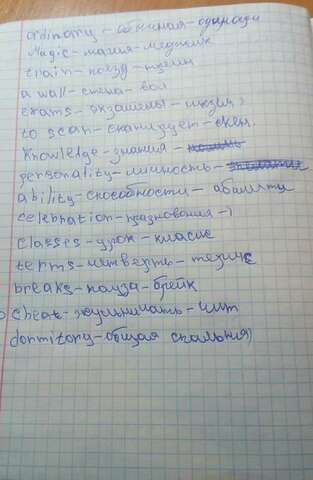 ordinary - обычная - одинари
Magic - магия - меджик
train - поезд - трейн
a wall - стена - вол
exams - экзамены -
to scan - сканирует - скен.
Knowledge - знания -
personality - личность -
ability - способности - абилити
celebration - празднования -
Classes - урок - класис
terms - четверть -
breaks - пауза - брейк
cheat - жульничать - чит
dormitory - общая спальня